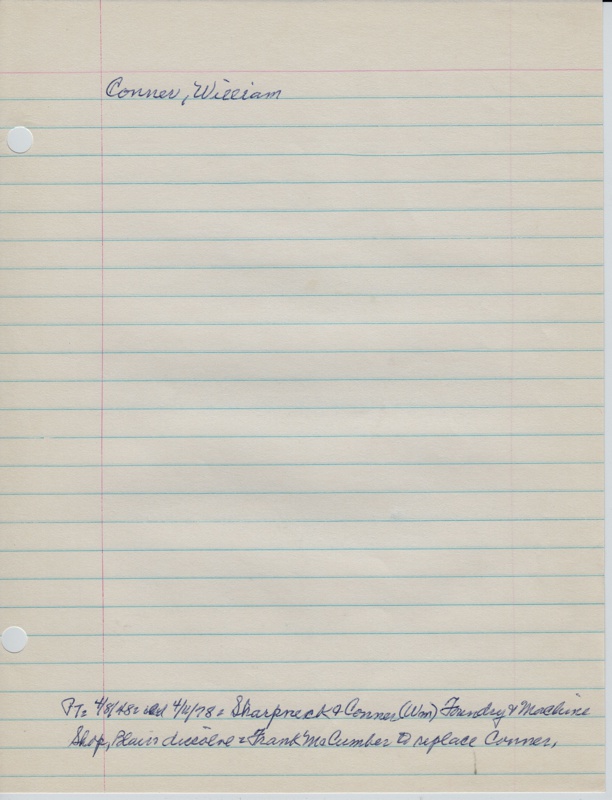 Conner, William
PT: 4/8/78: ad 4/11/78 = Sharpneck & Conner (Wm) Foundry & Machine
Shop, Blair dissolve & Frank McCumber to replace Conner.